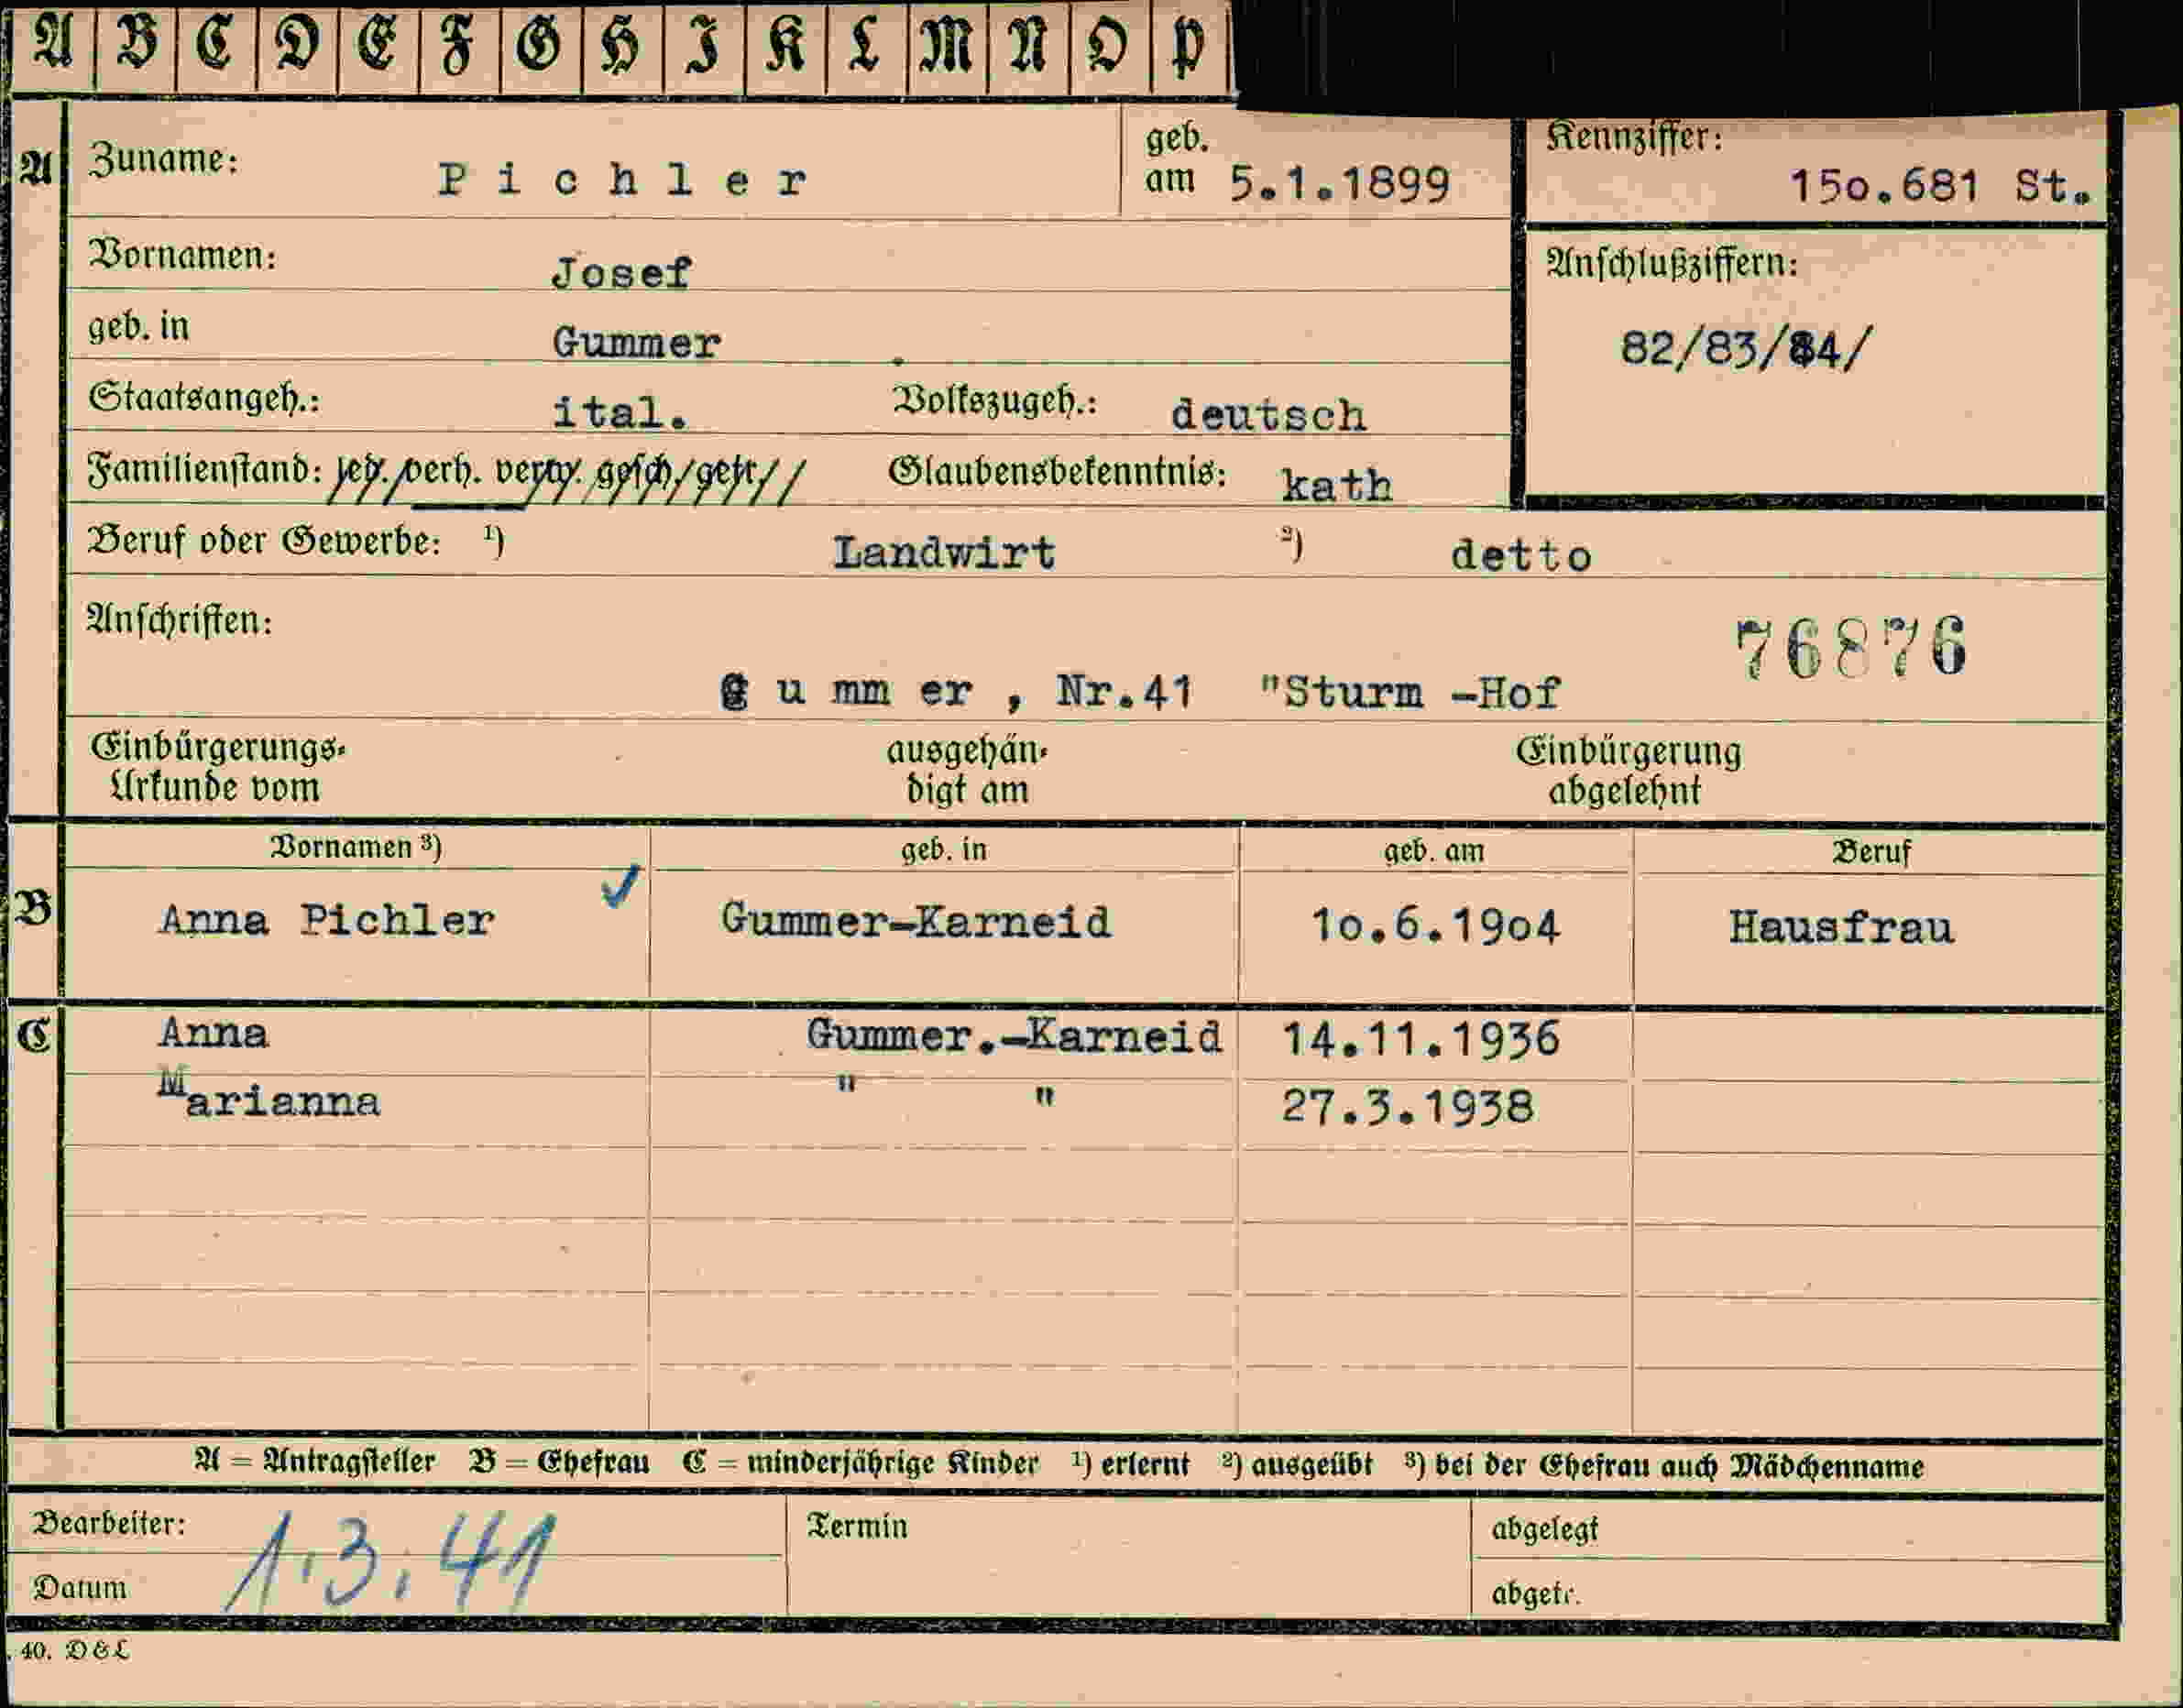 A B C D E F G H I K L M N O P
A Zuname: Pichler geb. am 5.1.1899 Kennziffer: 15o.681 St.
Vornamen: Josef Anschlußziffern:
geb. in Gummer 82/83/84/
Staatsangeh.: ital. Volkszugeh.: deutsch
Familienstand: led. verh. verw. gesch. getr. Glaubensbekenntnis: kath
Beruf oder Gewerbe: ¹) Landwirt ²) detto
Anschriften: 76876
G u mm er , Nr.41 "Sturm -Hof
Einbürgerungs- ausgehän- Einbürgerung
Urkunde vom digt am abgelehnt
Vornamen ³) geb. in geb. am Beruf
B Anna Pichler ✓ Gummer-Karneid 1o.6.19o4 Hausfrau
C Anna Gummer.-Karneid 14.11.1936
Marianna " " 27.3.1938
A = Antragsteller B = Ehefrau C = minderjährige Kinder ¹) erlernt ²) ausgeübt ³) bei der Ehefrau auch Mädchenname
Bearbeiter: 1.3.41 Termin abgelegt
Datum abgetr.
40. D & L